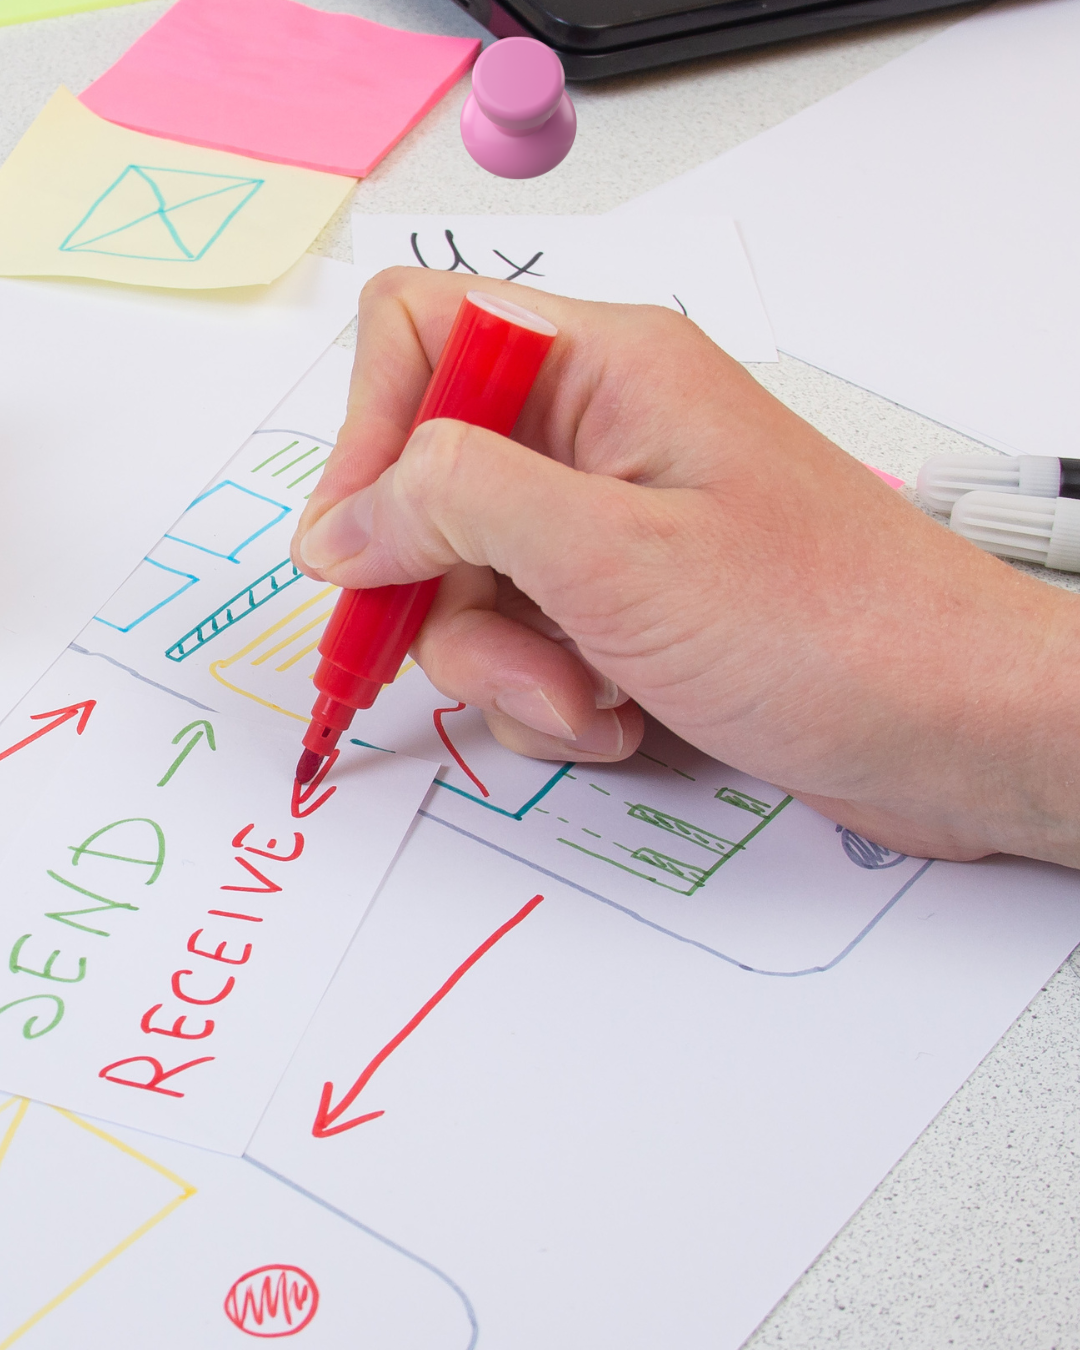 SEND
RECEIVE